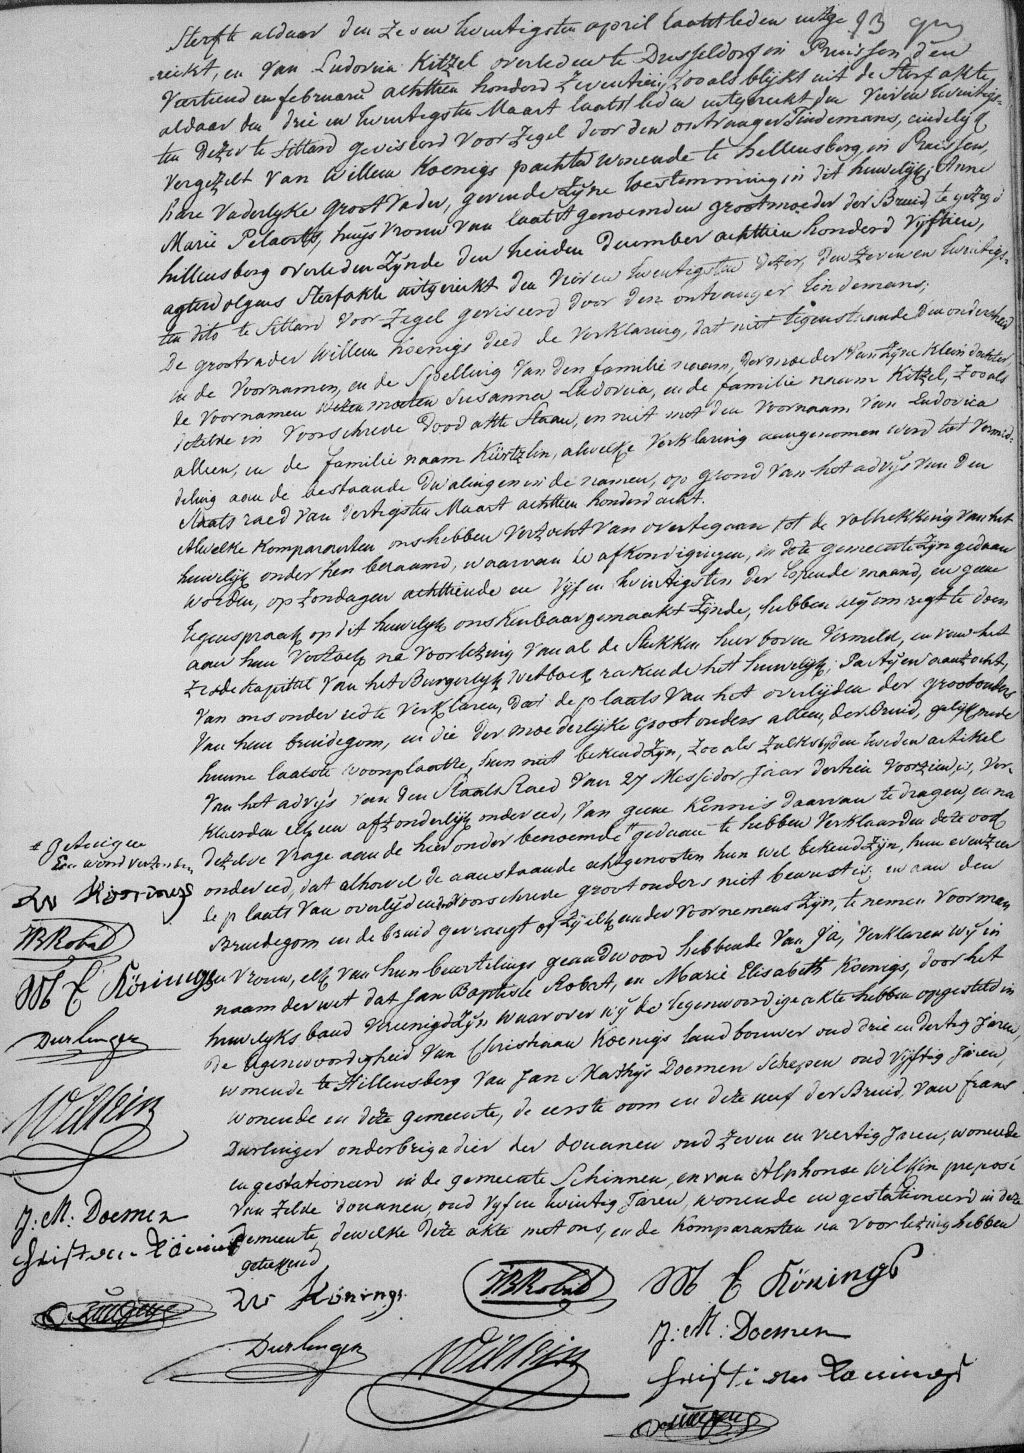 Sterfte aldaar den Zes en twentigsten april laatstleden uitge 93
reikt, en van Ludovica Kitzel overleden te Dusseldorf in Pruissen den
Veertiend en februarii achttien honderd Zeventien, Zo als blijkt uit de Sterf akte,
aldaar den drie en twentigsten Maart laatstleden uitgereikt den Vier en twentigs-
ten Dezer te Sittard geviseerd voor Zegel door den ontvanger Lindemans, eindelijk
Vergezelt van Willem Koenigs pachter wonende te hillensberg, in Pruissen,
hare Vaderlijke Groot Vader, gevende Zijne toestemming in dit huwelijk; Anne
Marie Pelaerts, huysvrouw van laatstgenoemden grootmoeder der Bruid, te gezegd
hillensberg overleden Zijnde den tienden December achttien honderd Vijftien,
agtervolgens Sterfakte uitgereikt den Vier en twentigsten dezer, den Zeven en twentigs-
ten dito te Sittard voor Zegel geviseerd door den ontvanger Lindemans;
De grootvader Willem Koenigs deed de Verklaring, dat niet tegenstaande den onderscheid
in de Voornamen, en de Spelling van den familie naam, der moeder van Zijne Klein dochter
de Voornamen wezen moeten Susanna Ludovica, en de familie naam Kitzel, Zo als
dezelve in Voorschreve dood akte Staan, en niet met den Voornaam van Ludovica
alleen, en de familie naam Kürtzlin, alwelke Verklaring aangenomen werd tot vermid-
deling aan de bestaande dwalingen in de namen, op grond van het advijs van den
Staats raed van dertigsten Maart achttien honderd acht.
Alwelke Komparanten ons hebben Verzocht van overtegaan tot de voltrekking van het
huwelijk onder hen beraamd, waarvan de afkondigingen, in deze gemeente Zijn gedaan
worden, op Zondagen achttiende en Vijf en twintigsten der lopende maand, en geene
tegenspraak op dit huwelijk ons kenbaar gemaakt Zijnde, hebben wij om regt te doen
aan hun Verzoek na Voorlezing van al de Stukken hier boven Vermeld, en van het
Zesde Kapittel van het Burgerlijk wetboek rakende het huwelijk; Partijen aanzocht,
van ons onder eed te Verklaren, dat de plaats van het overlijden der grootouders
van hun bruidegom, en die der moederlijke grootouders alleen, der Bruid, gelijk mede
hunne laatste woonplaatse, hun niet bekend Zijn, Zoo als Zulks bij den tweeden artikel
van het advijs van den Staats Raed van 27 Messidor, jaar dertien Voorzien is, Ver-
klaerden elk een afzonderlijk onder eed, van geene Kennis daarvan te dragen, en na
dezelve Vrage aan de hier onder benoemde gedaan te hebben Verklaarden deze ook
onder eed, dat alhoewel de aanstaande echtgenooten hun wel bekend Zijn, hun even zeer
de plaats van overlijden der Voorschreve grootouders niet bewust is, en aan den
Bruidegom en de bruid gevraagt of Zij elkander Voornemens Zijn, te nemen voor man
en Vrouw, elk van hun beurtelings geandwoord hebbende Van Ja, Verklaren wij in
naam der wet dat Jan Baptiste Robert, en Marie Elisabeth Koenigs, door het
huwelijks band Vereenigd Zijn waar over wij de tegenwoordige akte hebben opgesteld in
de tegenwoordigheid van Christiaan Koenigs landbouwer oud drie en dertig Jaren,
wonende te Hillensberg van Jan Mathijs Doemen Schepen oud Vijftig Jaren,
wonende in deze gemeente, de eerste oom en deze neef der Bruid, van Frans
Durlinger onderbrigadier der douanen oud Zeven en veertig Jaren, wonende
en gestationeerd in de gemeente Schinnen, en van Alphonse Wilkin preposé
van Zelde douanen, oud Vijf en twintig Jaren, wonende en gestationeerd in deze
gemeente, dewelke deze akte met ons, en de Komparanten na voorlezing hebben
getekend
# getuigen
Een woord verzonden
W Könings
JB Robert
M E Könings
Durlinger
Wilkin
J: M: Doemen
W Könings
JB Robert
M E Könings
Durlinger
Wilkin
J: M: Doemen